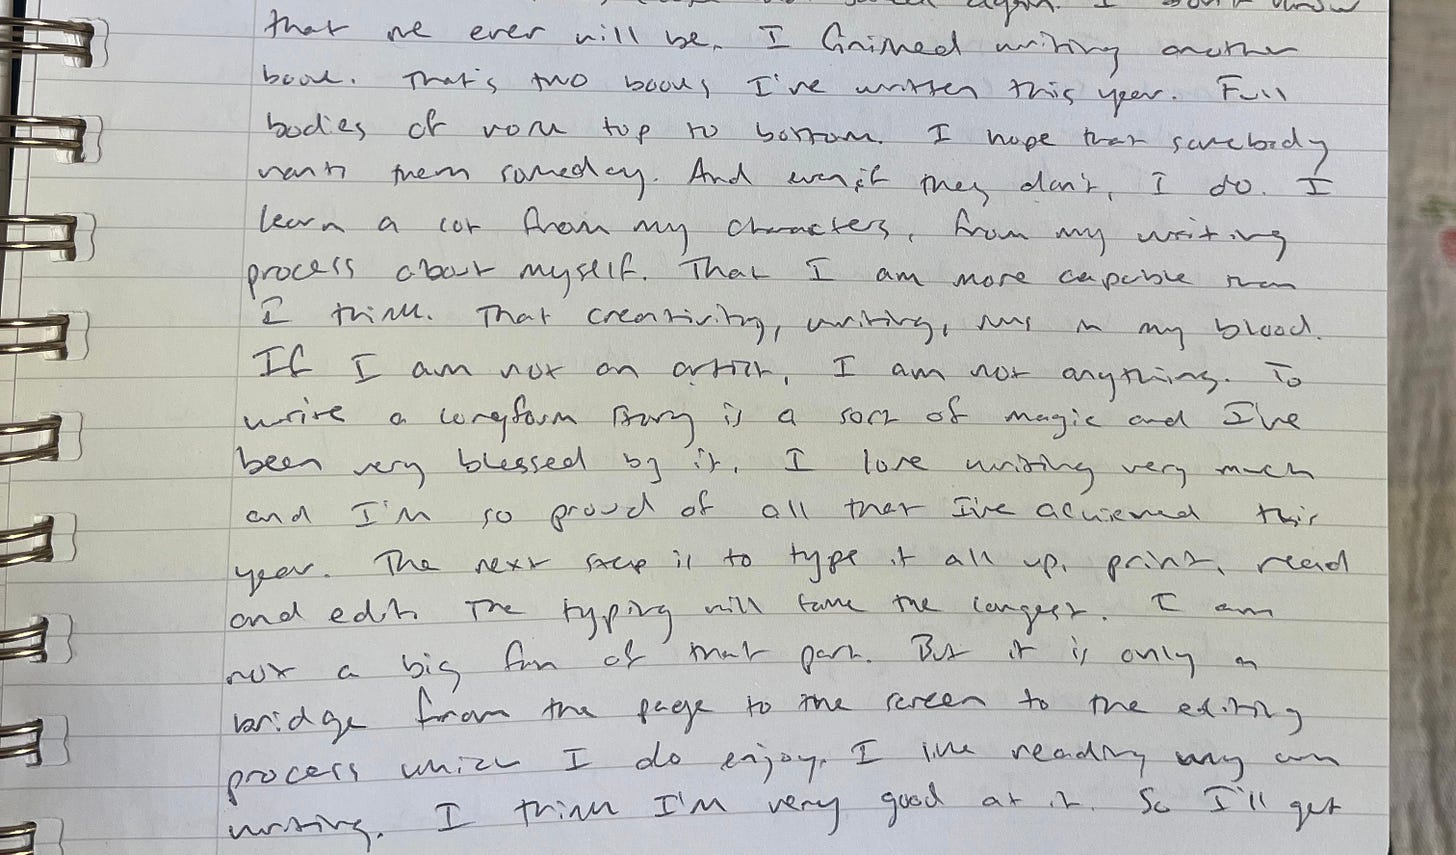 again. I don't know
that we ever will be. I finished writing another
book. That's two books I've written this year. Full
bodies of work top to bottom. I hope that somebody
wants them someday. And even if they don't, I do. I
learn a lot from my characters, from my writing
process about myself. That I am more capable than
I think. That creativity, writing, runs in my blood.
If I am not an artist, I am not anything. To
write a longform story is a sort of magic and I've
been very blessed by it. I love writing very much
and I'm so proud of all that I've achieved this
year. The next step is to type it all up, print, read
and edit. The typing will take the longest. I am
not a big fan of that part. But it is only a
bridge from the page to the screen to the editing
process which I do enjoy. I like reading my own
writing. I think I'm very good at it. So I'll get